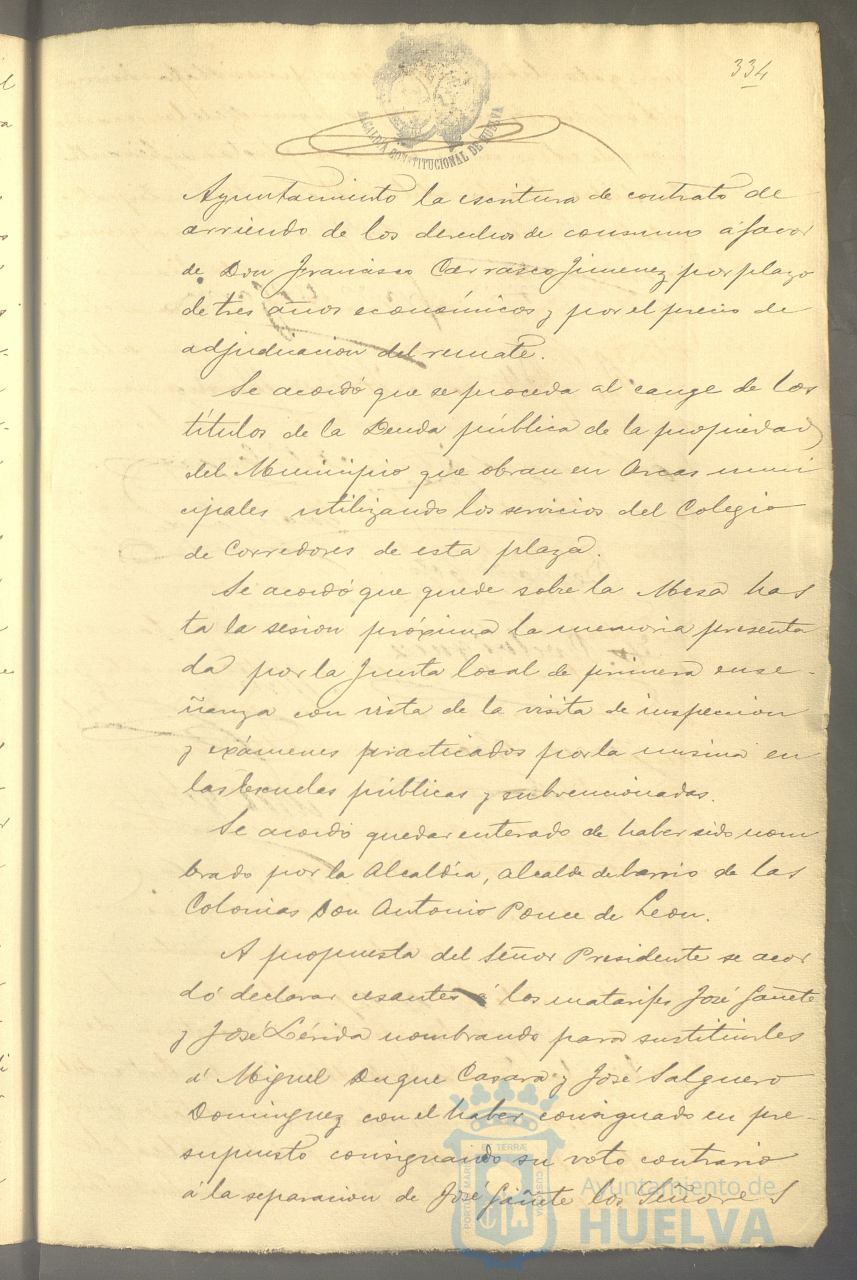 334
ALCALDÍA CONSTITUCIONAL DE HUELVA
Ayuntamiento la escritura de contrato de
arriendo de los derechos de consumo á favor
de Don Francisco Carrasco Jimenez por plazo
de tres años económicos y por el precio de
adjudicacion del remate.
Se acordó que se proceda al cange de los
títulos de la Deuda pública de la propiedad
del Municipio que obran en Arcas muni
cipales utilizando los servicios del Colegio
de Corredores de esta plaza.
Se acordó que quede sobre la Mesa has
ta la sesion próxima la memoria presenta
da por la Junta local de primera ense-
ñanza con vista de la visita de inspeccion
y exámenes practicados por la misma en
las Escuelas públicas y subvencionadas.
Se acordó quedar enterado de haber sido nom
brado por la Alcaldía, alcalde de barrio de las
Colonias Don Antonio Ponce de Leon.
A propuesta del Señor Presidente se acor
dó declarar cesantes á los matarifes José Gañete
y José Lérida nombrando para sustituirles
á Miguel Duque Casara y José Salguero
Dominguez con el haber consignado en pre-
supuesto consignando su voto contrario
á la separacion de José Gañete los Señores
Ayuntamiento de
HUELVA